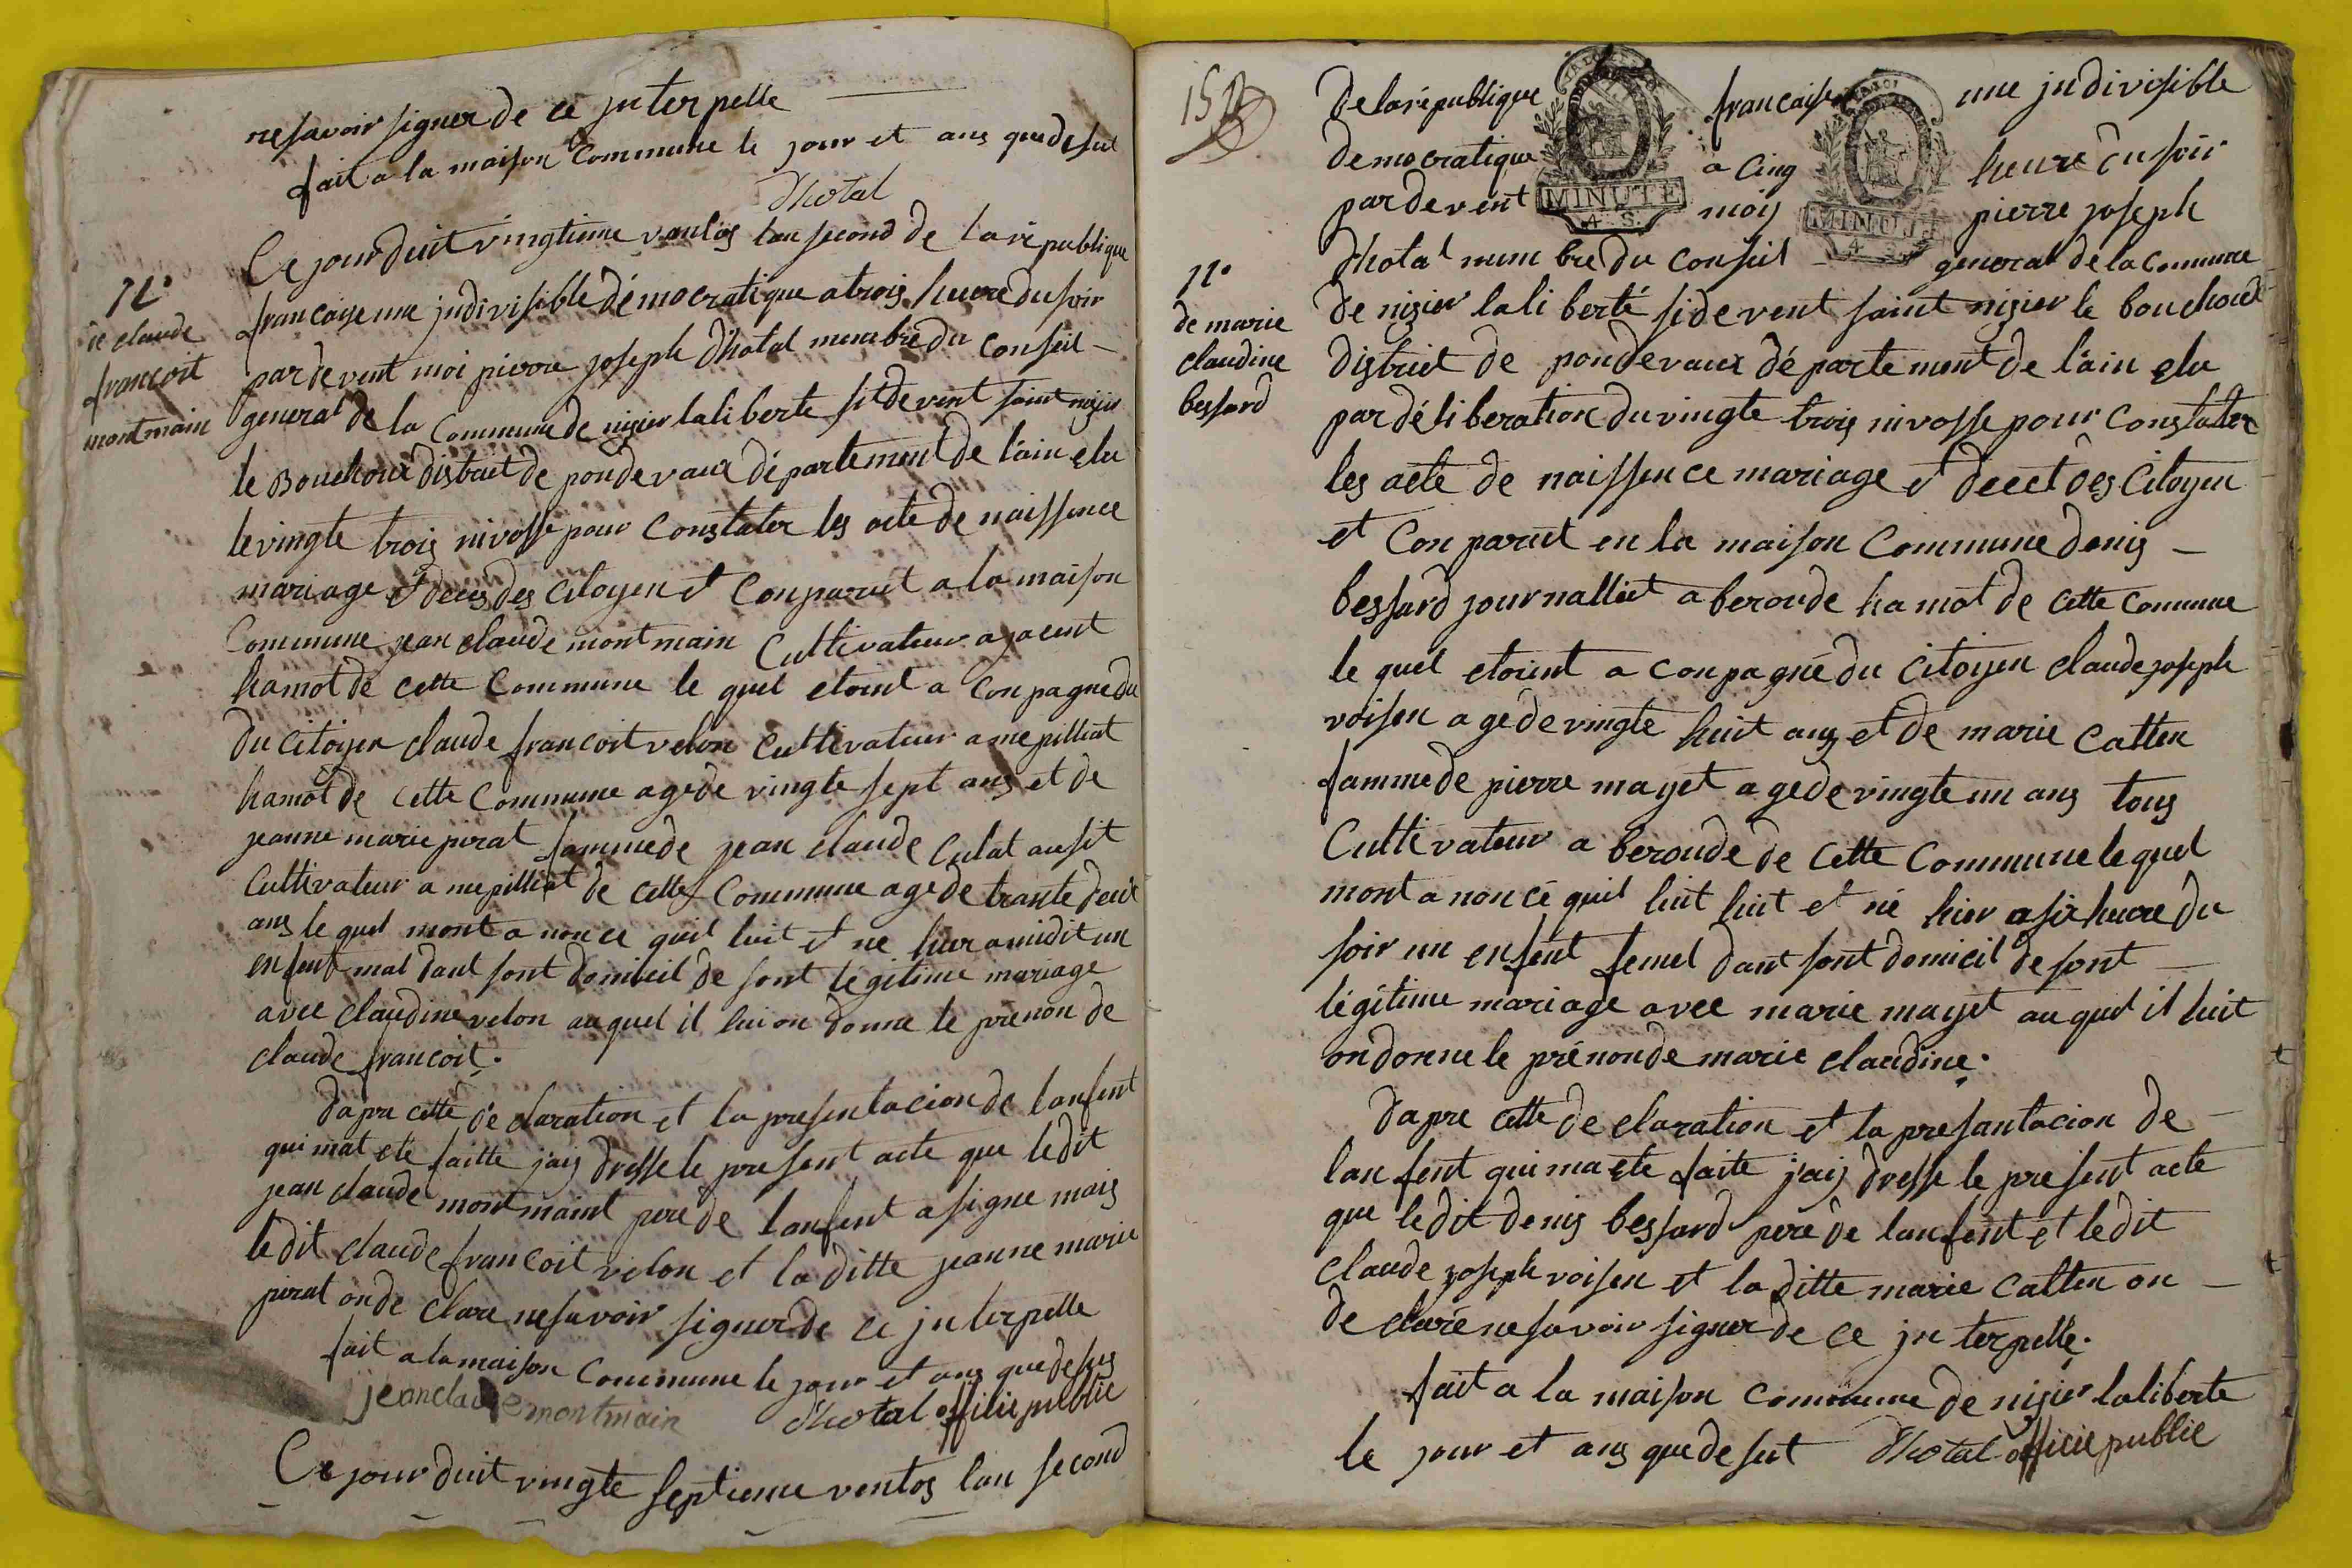 ne savoir signer de ce jnterpelle
fait a la maison commune le jour et ans que desut
Dhotal
N.°
de claude
francoit
montmain
Ce jourduit vingtieme vantos lan second de la république
francaise une jndivisible démocratique a trois heure du soir
pardevent moi pierre joseph Dhotal membre du conseil
general de la commune de nizier laliberte sit devent saint nizier
le Bouchoux distruit de pondevaux département de lain elu
le vingte trois nivosse pour constater les acte de naissence
mariage et deces des citoyen et conparut a la maison
commune jean claude montmain cultivateur a jacent
hamot de cette commune le quel etoint a conpagnedu
du citoyen claude francoit velon cultivateur a mepilliat
hamot de cette commune agede vingte sept ans et de
jeanne marie pirat fammede jean claude culat ausit
cultivateur a mepilliat de cette commune agede trante deux
ans le quel mont a nonce quil luit et ne hier a midit un
enfent mal dant sont domicil de sont legitime mariage
avec claudine velon auquel il lui on donne le prenon de
claude francoit.
Dapre cette declaration et la presentacion de lanfent
qui mat ete faitte jais dresse le present acte que ledit
jean claude montmaint pere de lanfent a signe mais
ledit claude francoit velon et la ditte jeanne marie
pirat onde clare nesavoir signer de ce jnterpelle
fait a la maison commune le jour et ans que desus
jeanclaudemontmain Dhotal officie public
Ce jourduit vingte septieme ventos lan second
152
De la république francaise une jndivisible
democratique a cinq heure du soir
pardevent moij pierre joseph
MINUTE
4. S.
MINUTE
4. S.
N.°
de marie
claudine
bessard
Dhotal membre du conseil general de la commune
de nizier laliberté sidevent saint nizier le bouchoud
district de pondevaux département de lain elu
par déliberation du vingte trois nivosse pour constater
les acte de naissence mariage et decet des citoyen
et conparut en la maison commune denis
bessard journalliét a beroude hamot de cette commune
le quel etoint a conpagné du citoyen claude joseph
voisen agede vingte huit ans et de marie catten
fammede pierre mayet agede vingte un ans tous
cultivateur a beroude de cette commune lequel
mont a noncé quil luit luit et né hier a six heure du
soir un enfent femel dant sont domicil de sont
légitime mariage avec marie mayet auquel il luit
ondonne le prénon de marie claudine.
Dapre cette declaration et la presantacion de
lanfent qui ma ete faite jaij dresse le present acte
que ledit denis bessard pere de lanfent et ledit
claude joseph voisen et la ditte marie catten on
de claré ne savoir signer de ce jnterpellé.
fait a la maison commune de nizier laliberte
le jour et ans que desut Dhotal officie public